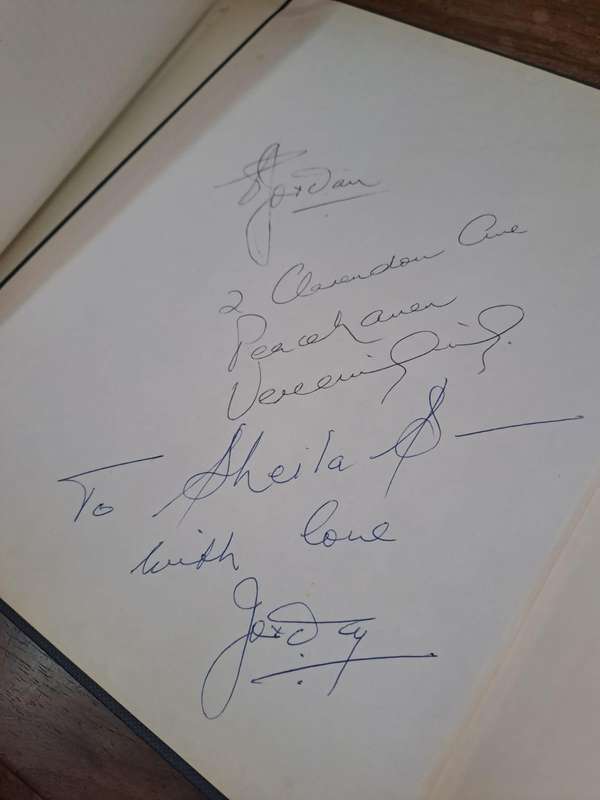 Jordan
2 Clarendon Ave
Peacehaven
Vereeniging.
To Sheila S—
with love